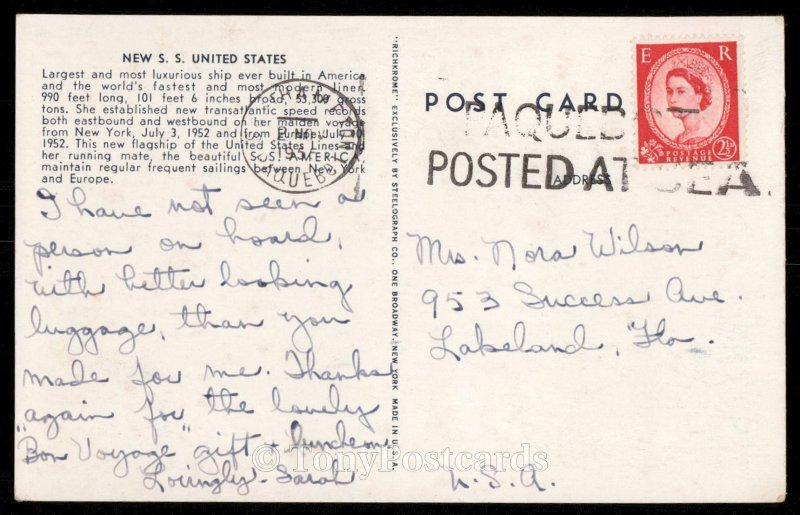 NEW S. S. UNITED STATES
Largest and most luxurious ship ever built in America
and the world's fastest and most modern liner.
990 feet long, 101 feet 6 inches broad, 53,300 gross
tons. She established new transatlantic speed records
both eastbound and westbound on her maiden voyage
from New York, July 3, 1952 and from Europe, July 10
1952. This new flagship of the United States Lines and
her running mate, the beautiful S.S. AMERICA
maintain regular frequent sailings between New York
and Europe.
I have not seen a
person on board,
with better looking
luggage, than you
made for me. Thanks
again for the lovely
"Bon Voyage" gift + luncheon
Lovingly - Sarah
"RICHKROME" EXCLUSIVELY BY STEELOGRAPH CO., ONE BROADWAY, NEW YORK MADE IN U.S.A.
POST CARD
PAQUEBOT
POSTED AT SEA.
ADDRESS
E R
POSTAGE
REVENUE
2½D
Mrs. Nora Wilson
953 Success Ave.
Lakeland, Fla.
U.S.A.
© TonyPostcards